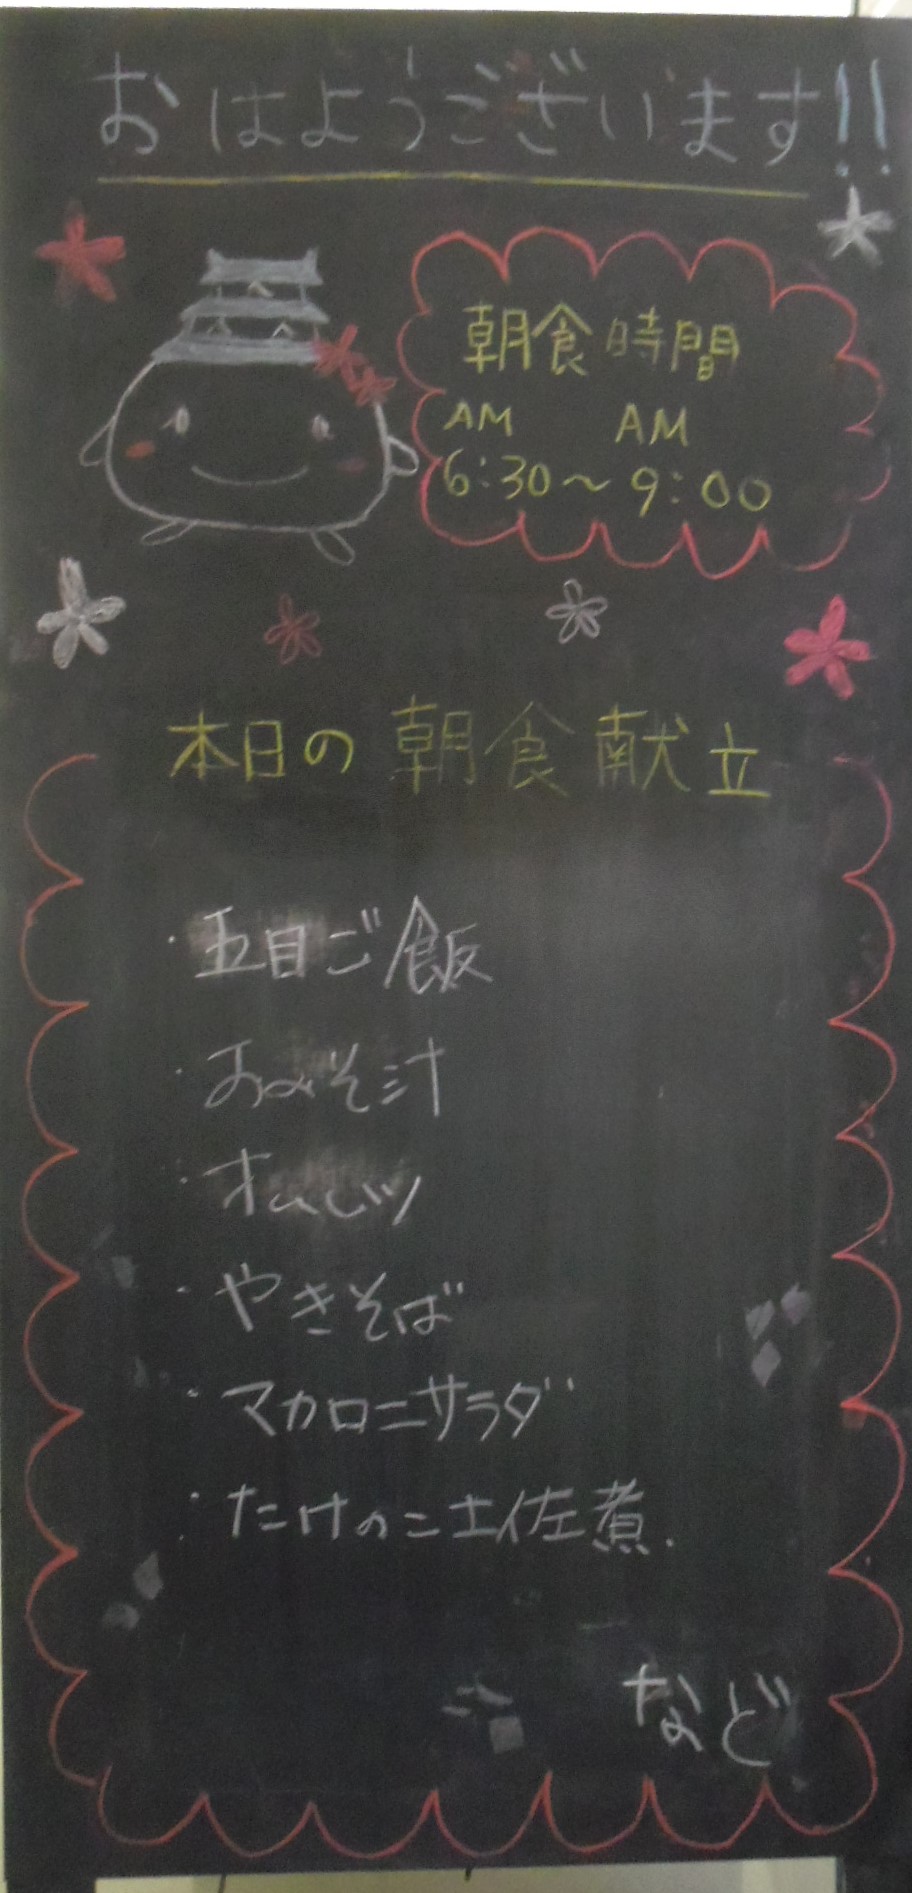 おはようございます!!
朝食時間
AM AM
6:30～9:00
本日の朝食献立
・五目ご飯
・おみそ汁
・オムレツ
・やきそば
・マカロニサラダ
・たけのこ土佐煮.
など